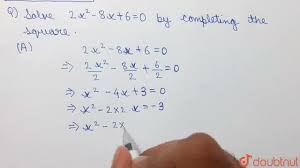 Q) Solve 2x²-8x+6=0 by completing the
square.
(A) 2x²-8x+6=0
⇒ 2x²/2 - 8x/2 + 6/2 = 0
⇒ x² - 4x+3=0
⇒ x²-2×2 x = -3
⇒ x²-2×
doubtnut